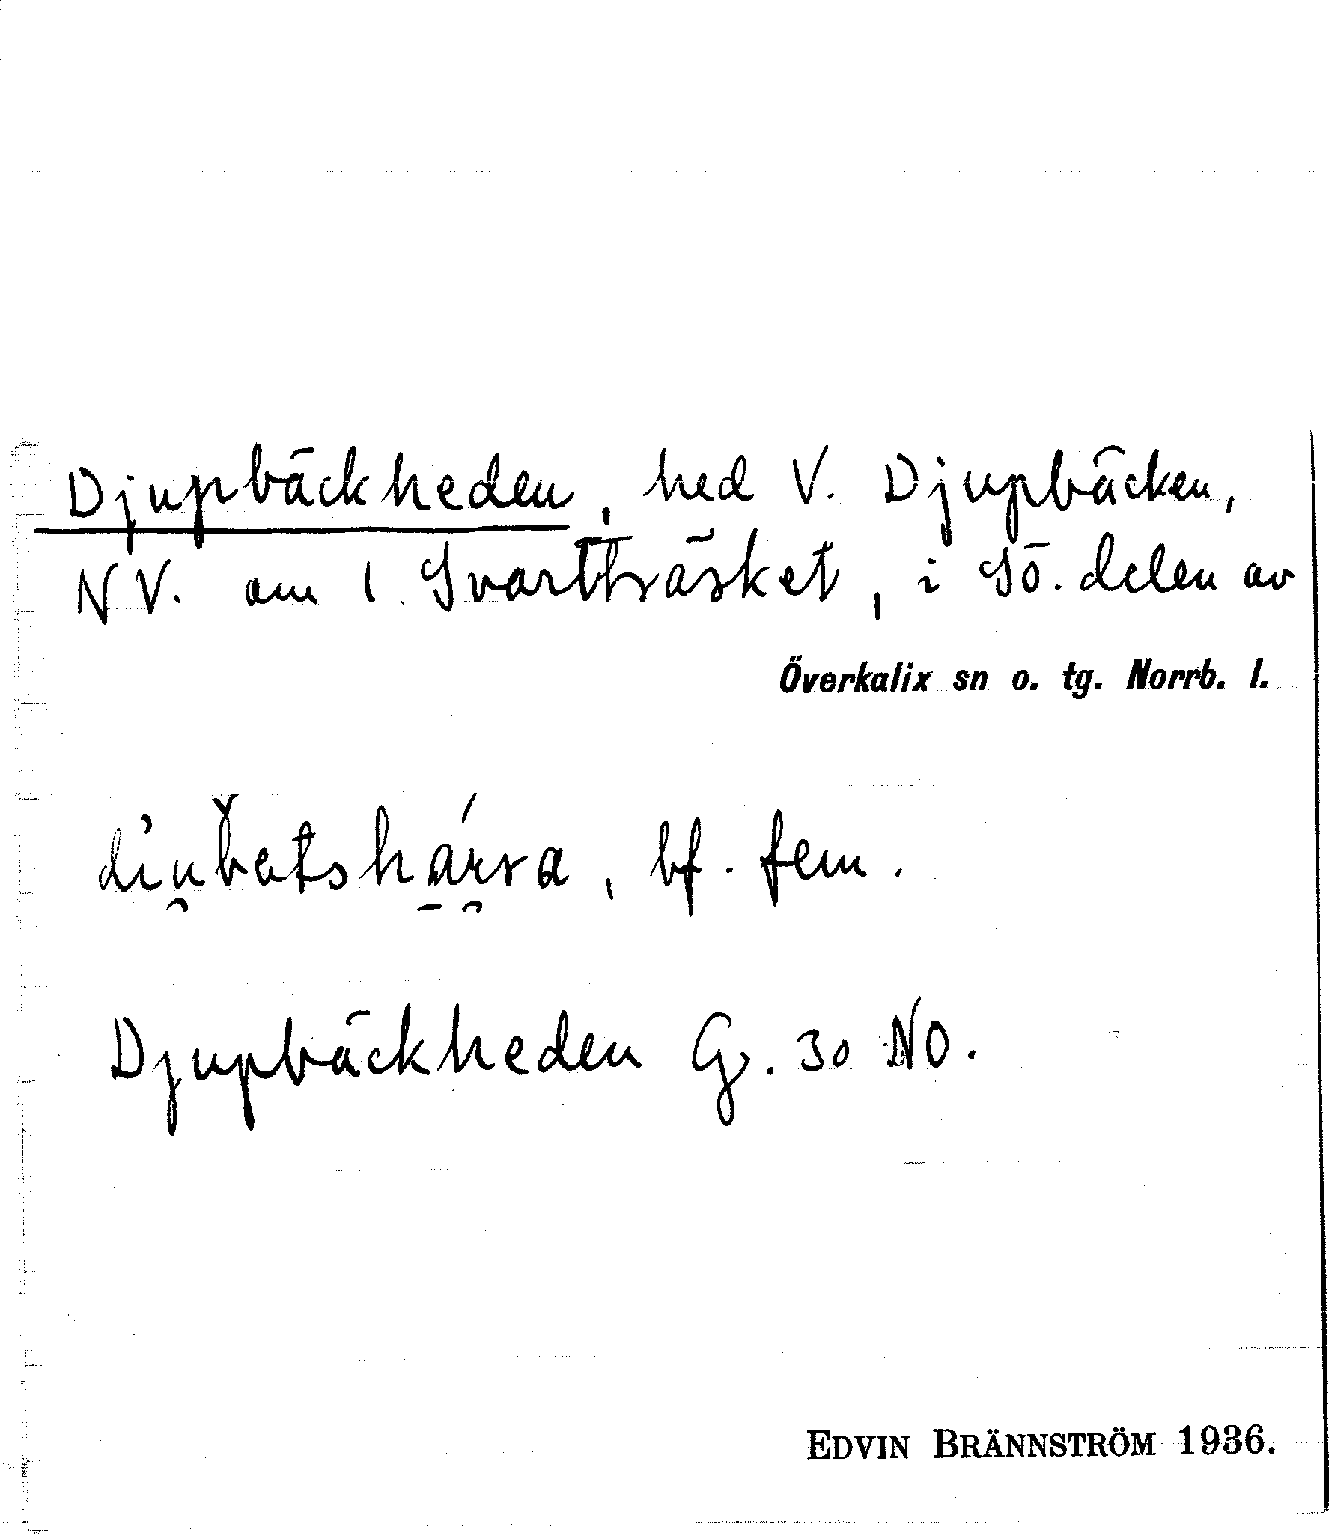 Djupbäckheden, hed V. Djupbäcken,
NV. om l. Svartträsket, i Sö. delen av
Överkalix sn o. tg. Norrb. l.
bf. fem.
Djupbäckheden G. 30 NO.
EDVIN BRÄNNSTRÖM 1936.